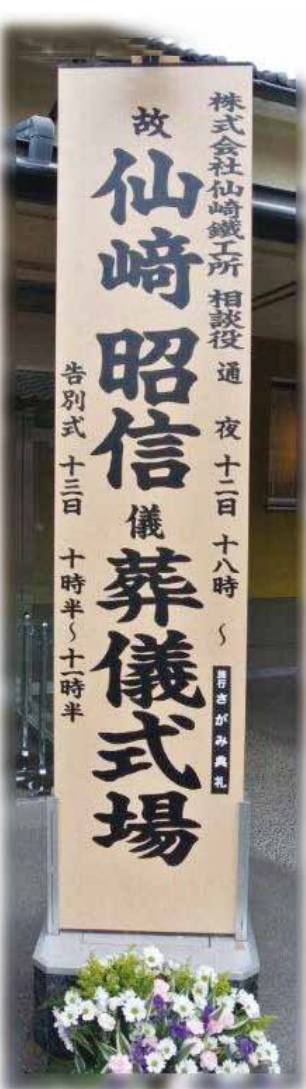 株式会社仙崎鐵工所 相談役 通 夜 十二日 十八時 ～
施行 さがみ典礼
故 仙﨑 昭信 儀 葬儀式場
告別式 十三日 十時半～十一時半